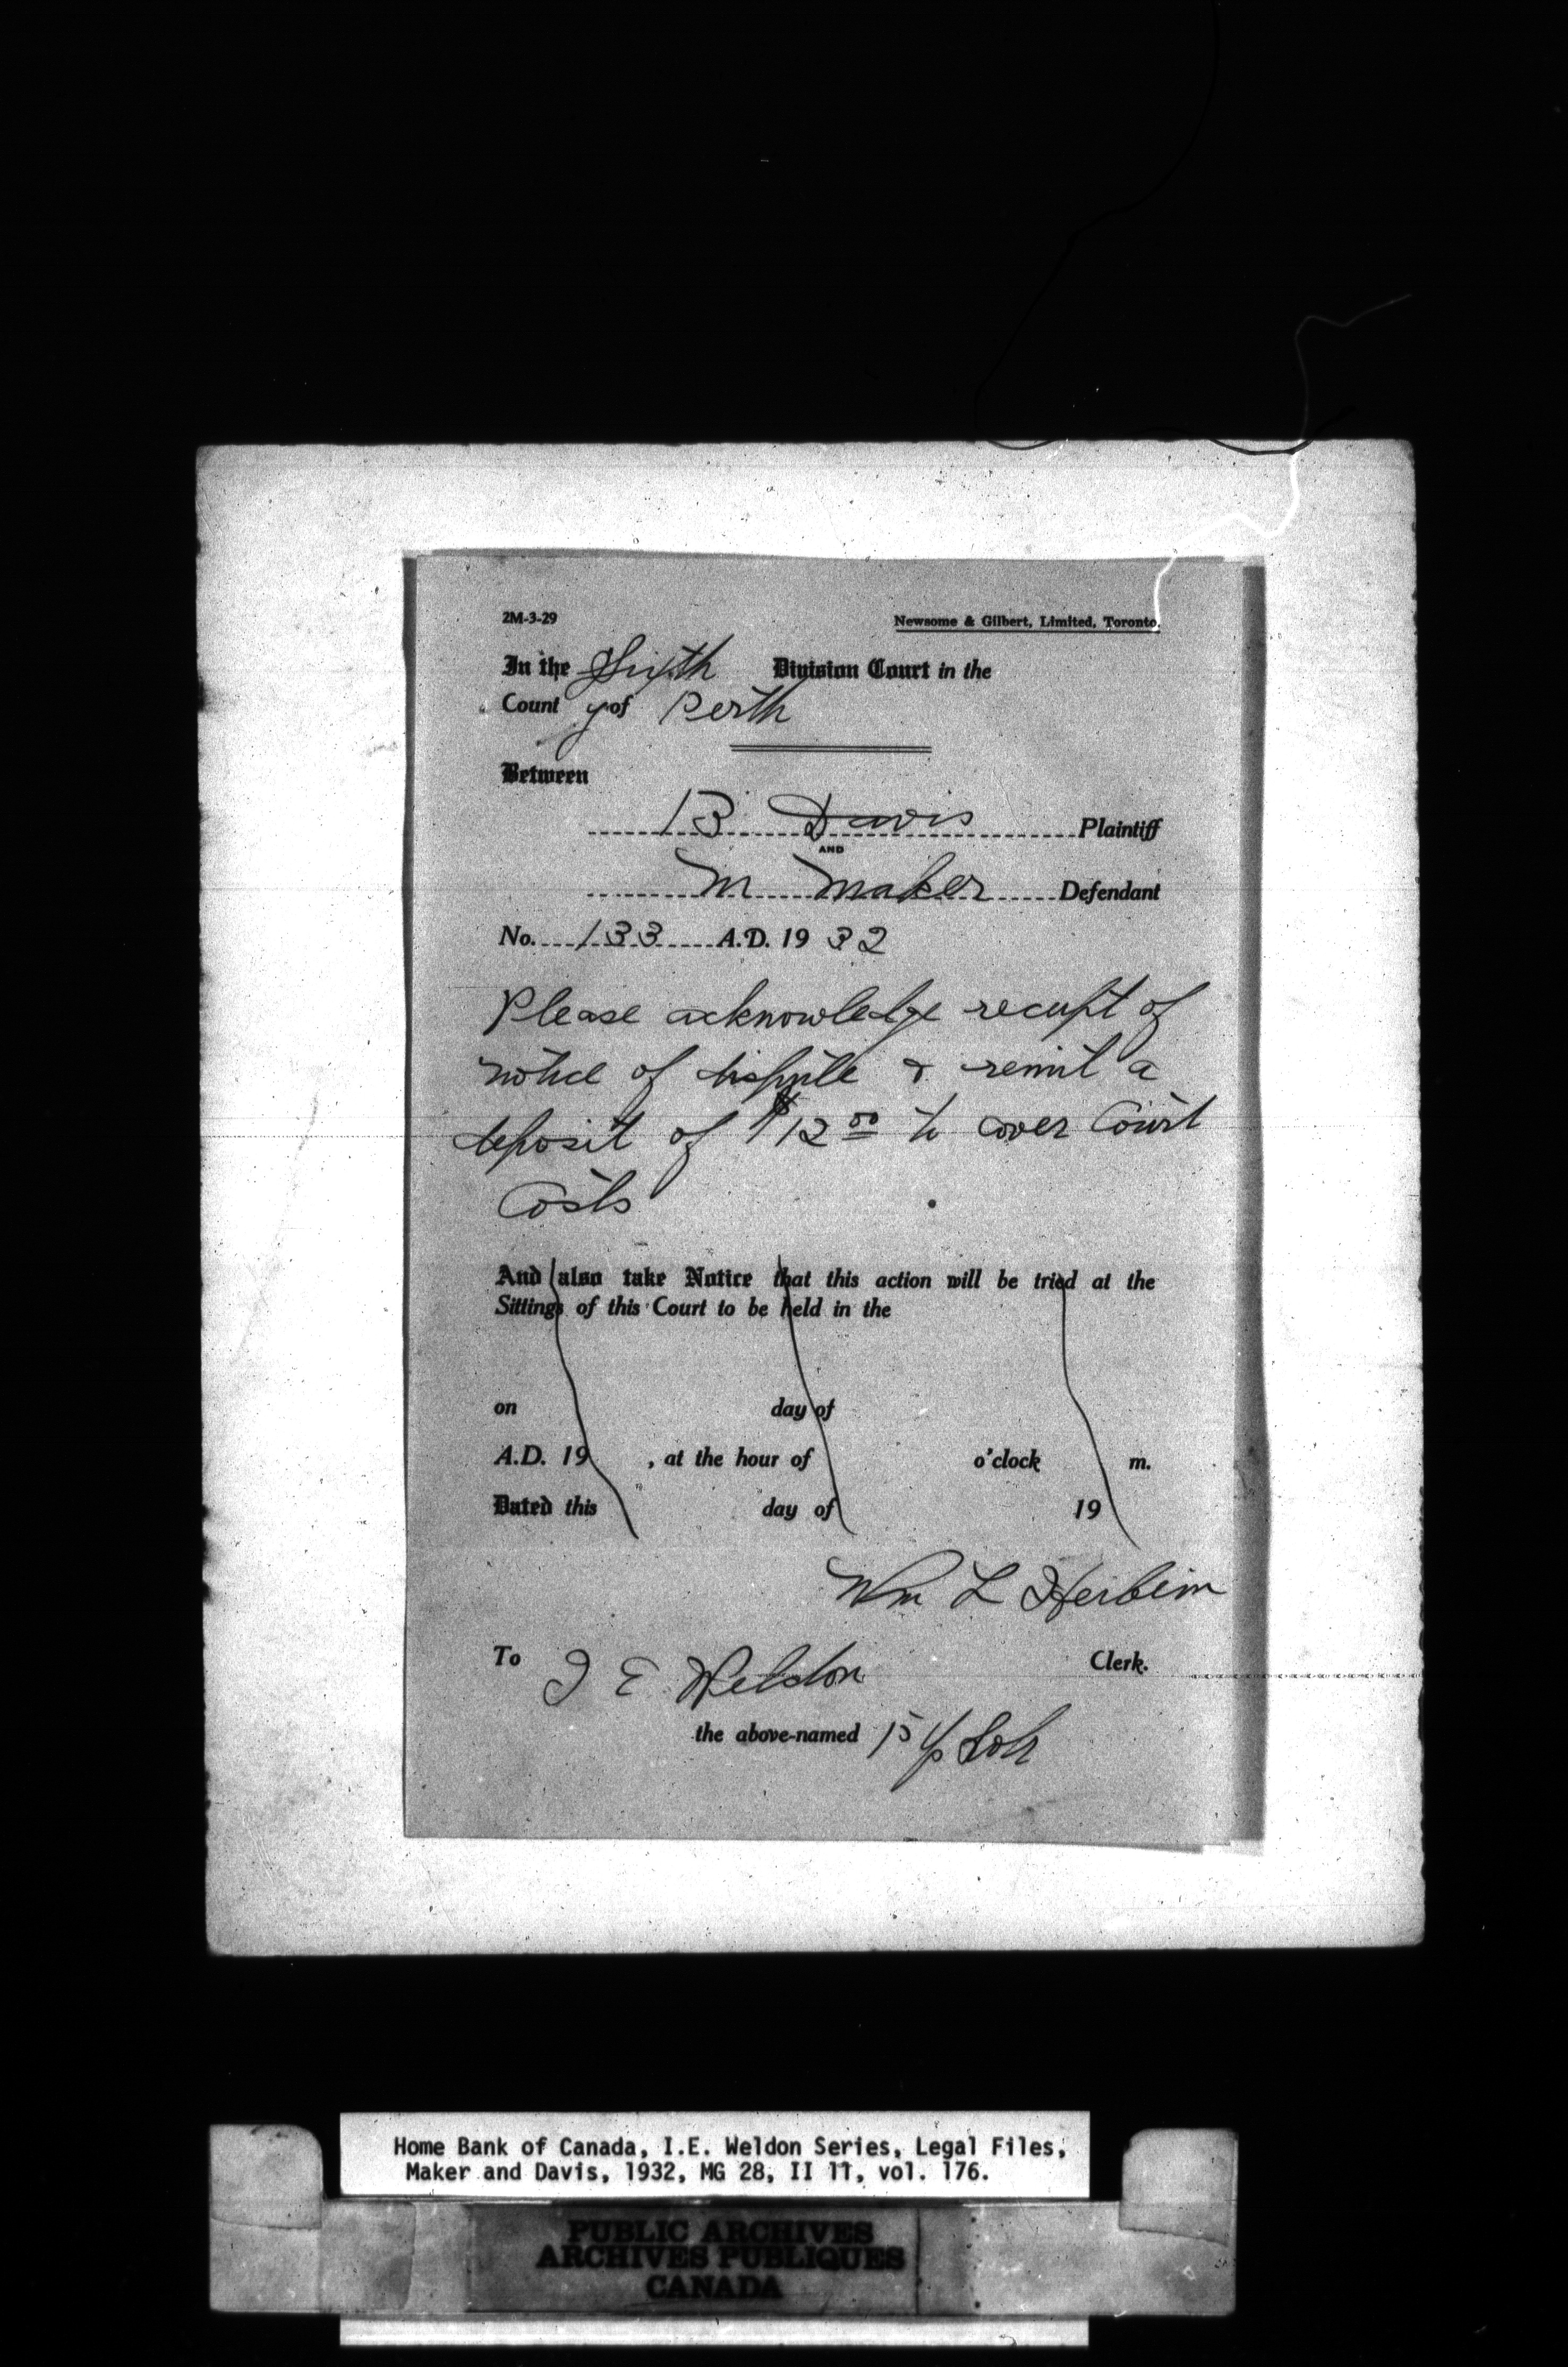 2M-3-29 Newsome & Gilbert, Limited, Toronto.
In the Sixth Division Court in the
County of Perth
Between
B Davis Plaintiff
AND
M Maker Defendant
No. 133 A.D. 19 32
Please acknowledge receipt of
notice of dispute & remit a
deposit of $12 00 to cover Court
Costs
And also take Notice that this action will be tried at the
Sittings of this Court to be held in the
on day of
A.D. 19 , at the hour of o'clock m.
Dated this day of 19
Wm L
To I E Weldon Clerk.
the above-named
Home Bank of Canada, I.E. Weldon Series, Legal Files,
Maker and Davis, 1932, MG 28, II 11, vol. 176.
PUBLIC ARCHIVES
ARCHIVES PUBLIQUES
CANADA